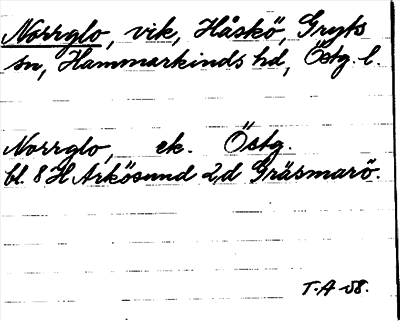 Norrglo, vik, Håskö, Gryts
sn, Hammarkinds hd, Östg. l.
Norrglo, ek. Östg.
bl. 8 H Arkösund 2d Gräsmarö.
T.A-58.